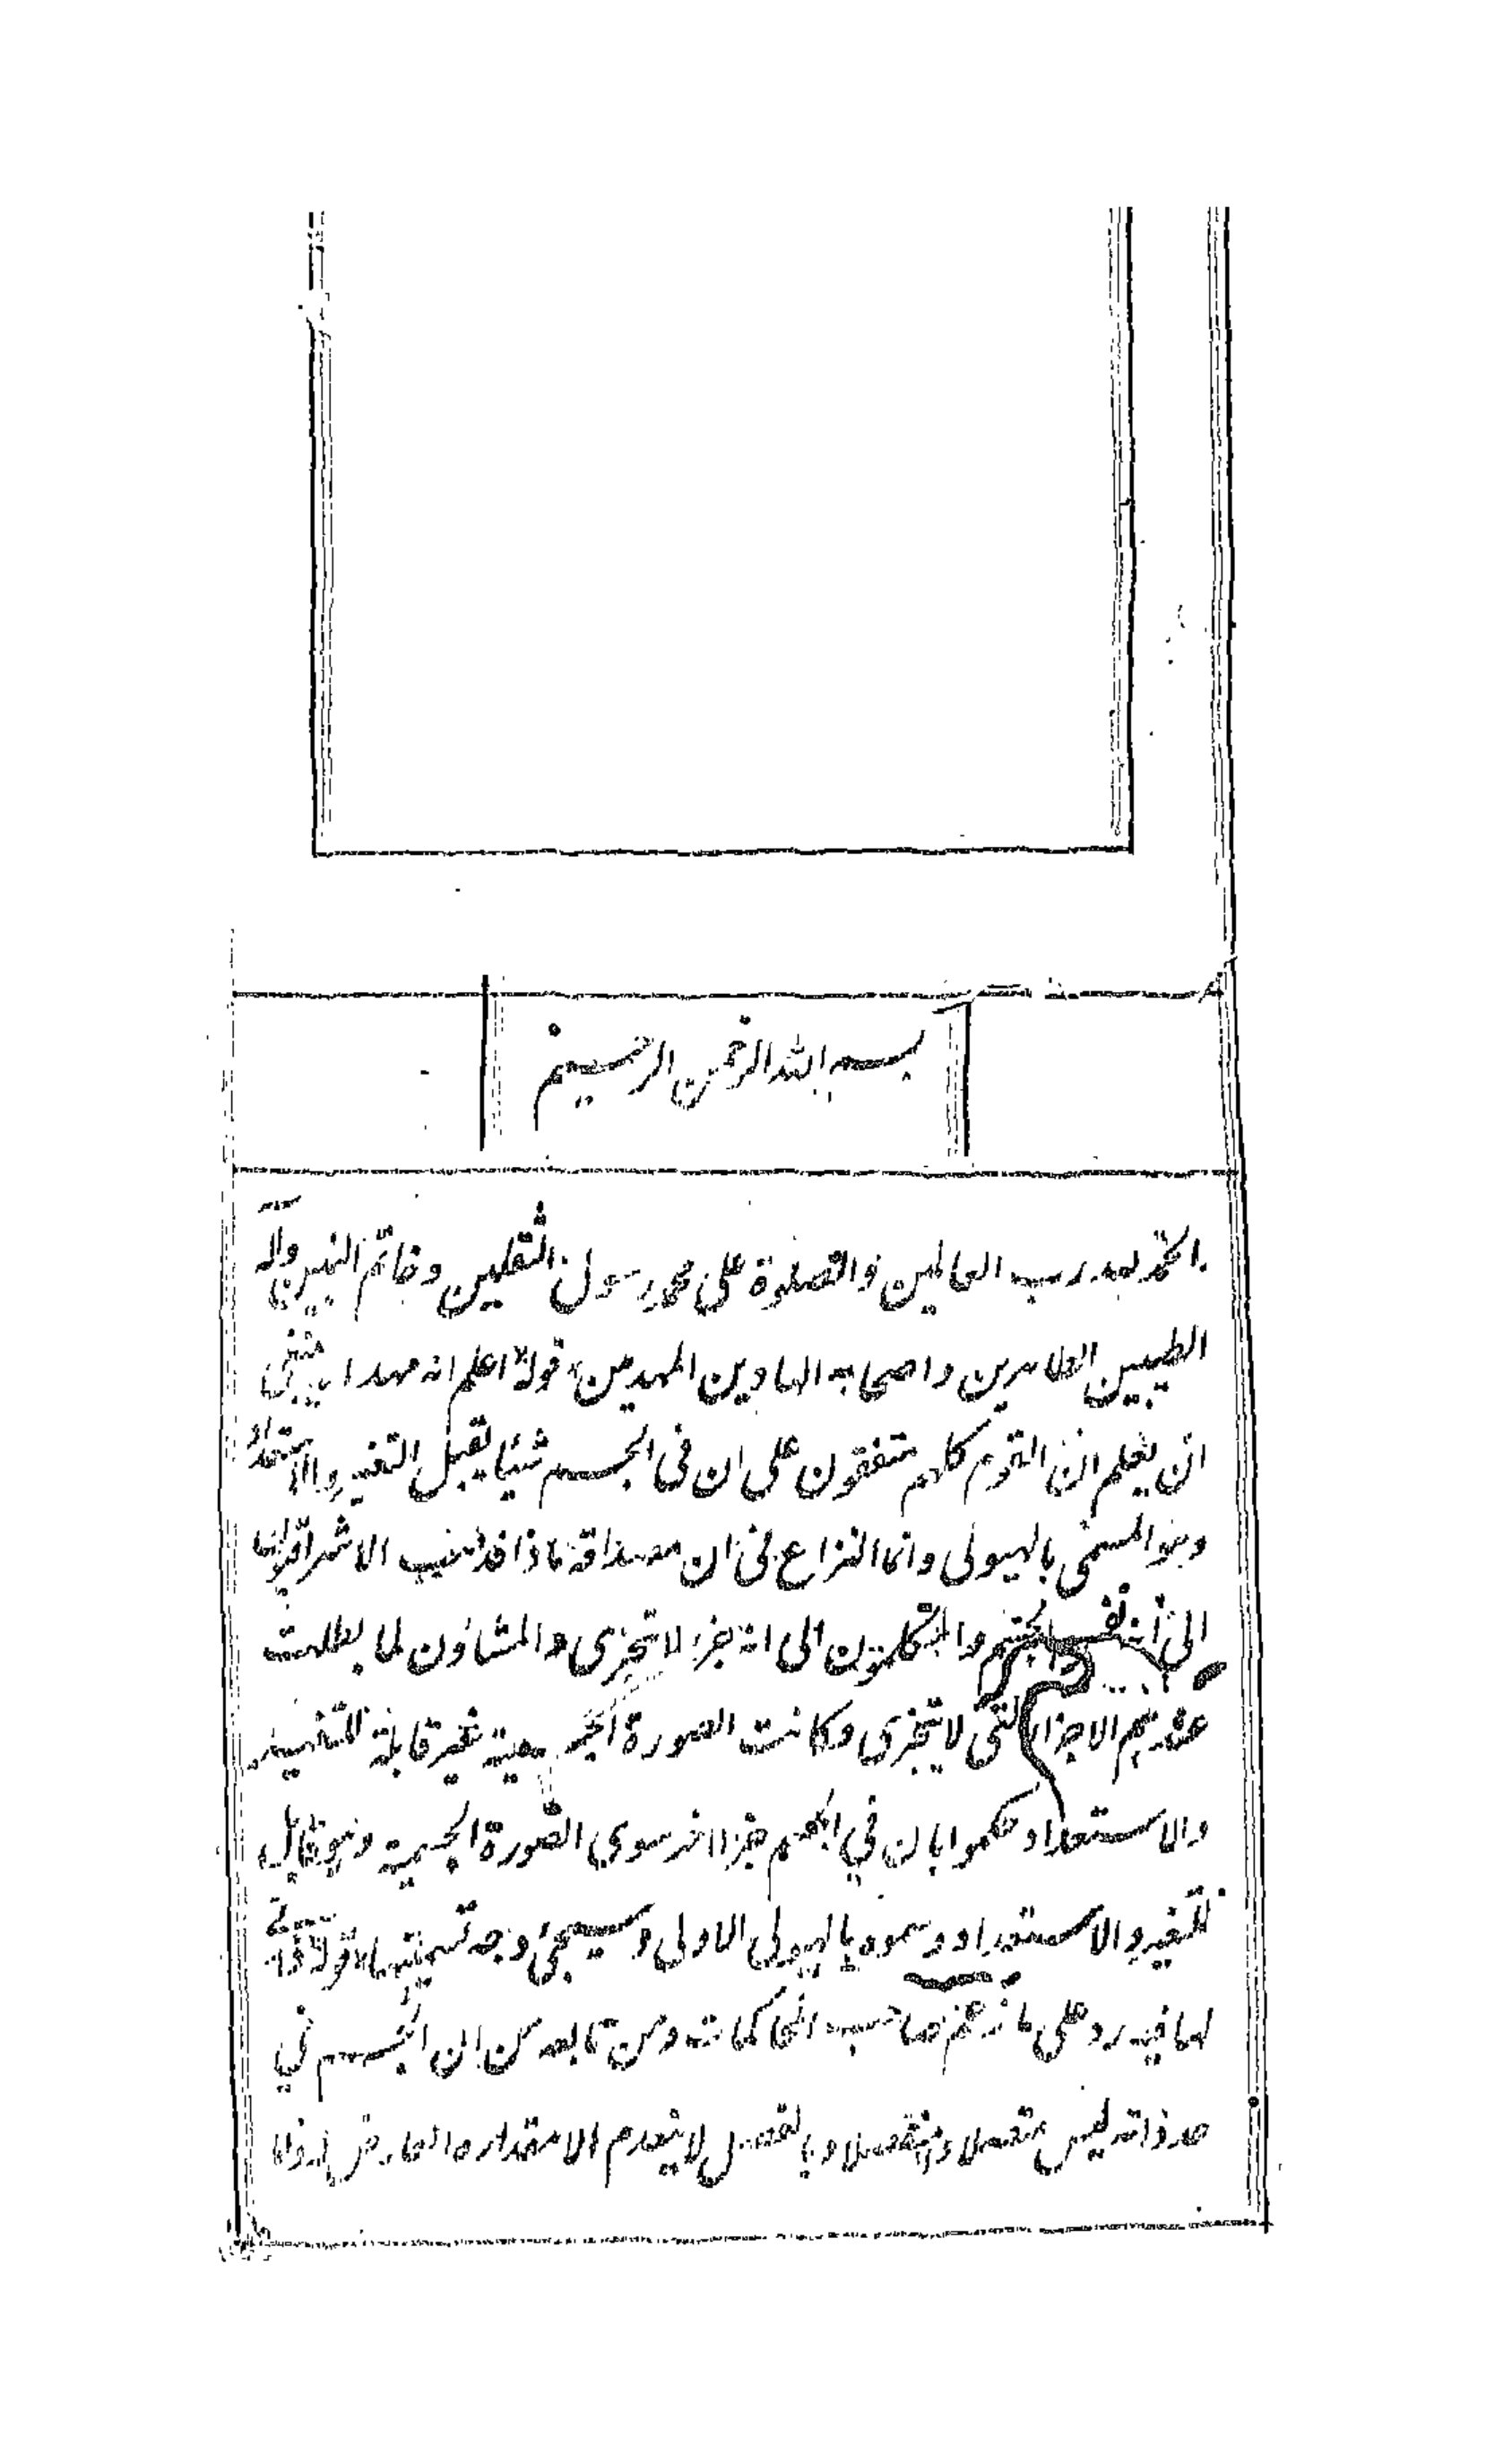 بسم الله الرحمن الرحيم
الحمد لله رب العالمين والصلوة على محمد رسول الثقلين وخاتم النبيين وآله
الطيبين الطاهرين واصحابه الهادين المهديين قوله اعلم انه مهدا ينبغى
ان يعلم ان القوم كلهم متفقون على ان فى الجسم شيئا يقبل التغير والاستعداد
وهو المسمى بالهيولى وانما النزاع فى ان مصداقه ماذا فذهب الاشراقيون
الى انه نفس الجسم والمتكلمون الى انه جزء لا تتجزى والمشاؤن لما بطلت
عندهم الاجزاء التى لا تتجزى وكانت الصورة الجسمية غير قابلة للتغير
والاستعداد حكموا بان في الجسم جزءا اخر سوى الصورة الجسمية وهو قابل
للتغير والاستعداد وسموه بالهيولى الاولى وسيجئ وجه تسميتها قوله
لها فيه رد على ما زعم صاحب المحاكمات ومن تابعه من ان الجسم في
حد ذاته ليس متصلا ومنفصلا وبالفصل لا ينعدم الا مقداره العارض